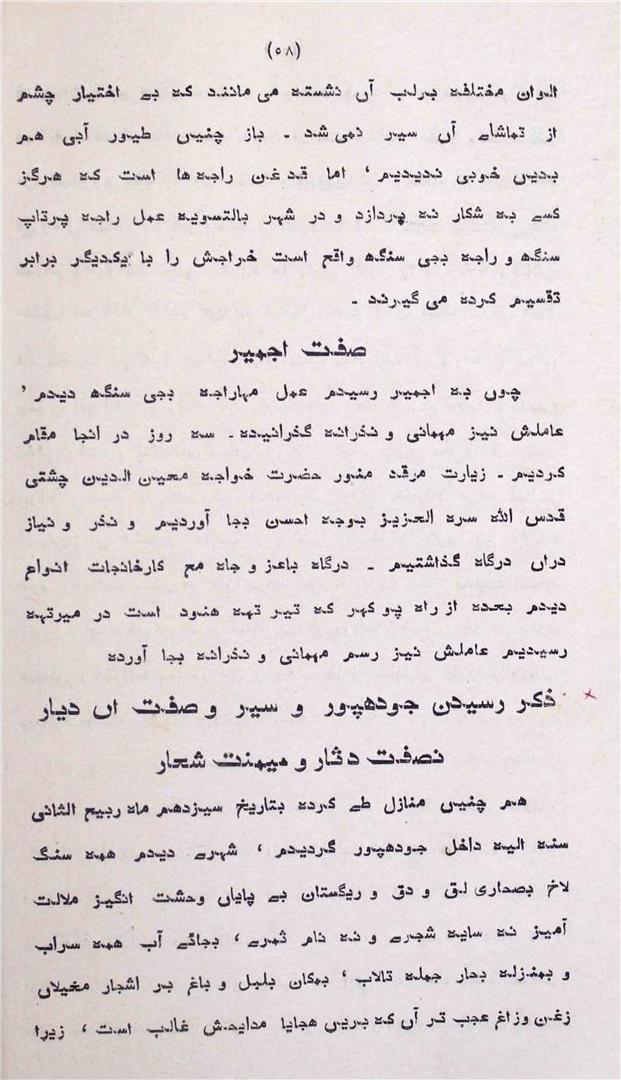 (٥٨)
الوان مختلفه برلب آں نشسته می مانند که بے اختیار چشم
از تماشاے آں سیر نمی شد ۔ باز چنیں طیور آبی هم
بدیں خوبی ندیدیم ، اما قدغن راجه ها است که هرگز
کسے به شکار نه پردازد و در شهر بالتسویه عمل راجه پرتاپ
سنگھ و راجه بجی سنگھ واقع است خراجش را با یکدیگر برابر
تقسیم کرده می گیرند ۔
صفت اجمیر
چوں به اجمیر رسیدم عمل مهاراجه بجی سنگھ دیدم ،
عاملش نیز مهمانی و نذرانه گذرانیده ۔ سه روز در انجا مقام
کردیم ۔ زیارت مرقد منور حضرت خواجه معین الدین چشتی
قدس الله سره العزیز بوجه احسن بجا آوردیم و نذر و نیاز
دراں درگاه گذاشتیم ۔ درگاه باعز و جاه مع کارخانجات انواع
دیدم بعده از راه پوکهر که تیرتهه هنود است در میرتهه
رسیدیم عاملش نیز رسم مهمانی و نذرانه بجا آورده
ذکر رسیدن جودهپور و سیر و صفت اں دیار
نصفت دثار و میمنت شعار
هم چنیں منازل طے کرده بتاریخ سیزدهم ماه ربیع الثانی
سنه الیه داخل جودهپور گردیدم ، شهرے دیدم همه سنگ
لاخ بصحاری لق و دق و ریگستان بے پایاں وحشت انگیز ملالت
آمیز نه سایه شجرے و نه نام ثمرے ، بجائے آب همه سراب
و بمنزله بحار جمله تالاب ، بمکان بلبل و باغ بر اشجار مغیلاں
زغن وزاغ عجب تر آں که بریں هجایا مدایحش غالب است ، زیرا